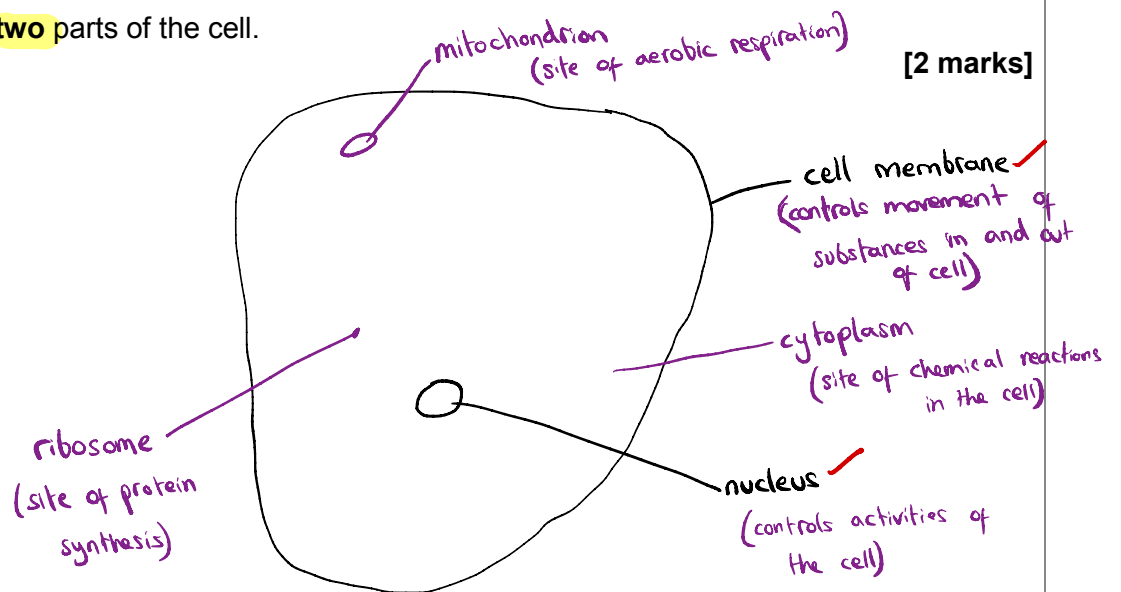 two parts of the cell.
[2 marks]
mitochondrion
(site of aerobic respiration)
cell membrane
(controls movement of
substances in and out
of cell)
cytoplasm
(site of chemical reactions
in the cell)
ribosome
(site of protein
synthesis)
nucleus
(controls activities of
the cell)